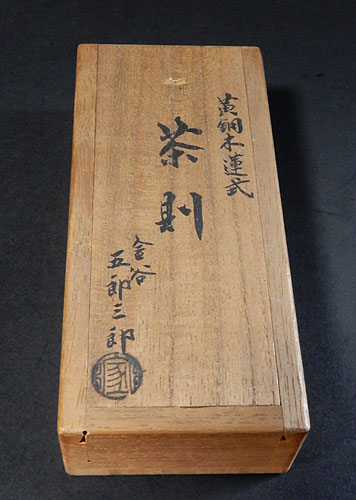 黄銅木蓮式
茶則
金谷
五郎三郎